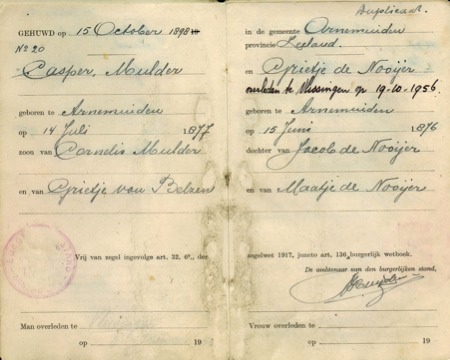 Duplicaat.
GEHUWD op 15 October 1898
No 20
Casper, Mulder
geboren te Arnemuiden
op 14 Juli 1877
zoon van Cornelis Mulder
en van Grietje van Belzen
Vrij van zegel ingevolge art. 32, 4°, der
Man overleden te
op 19
in de gemeente Arnemuiden
provincie Zeeland.
en Grietje de Nooijer
overleden te Vlissingen op 19-10-1956
geboren te Arnemuiden
op 15 Juni 1876
dochter van Jacob de Nooijer
en van Maatje de Nooijer
zegelwet 1917, juncto art. 136 burgerlijk wetboek.
De ambtenaar van den burgerlijken stand,
Vrouw overleden te
op 19